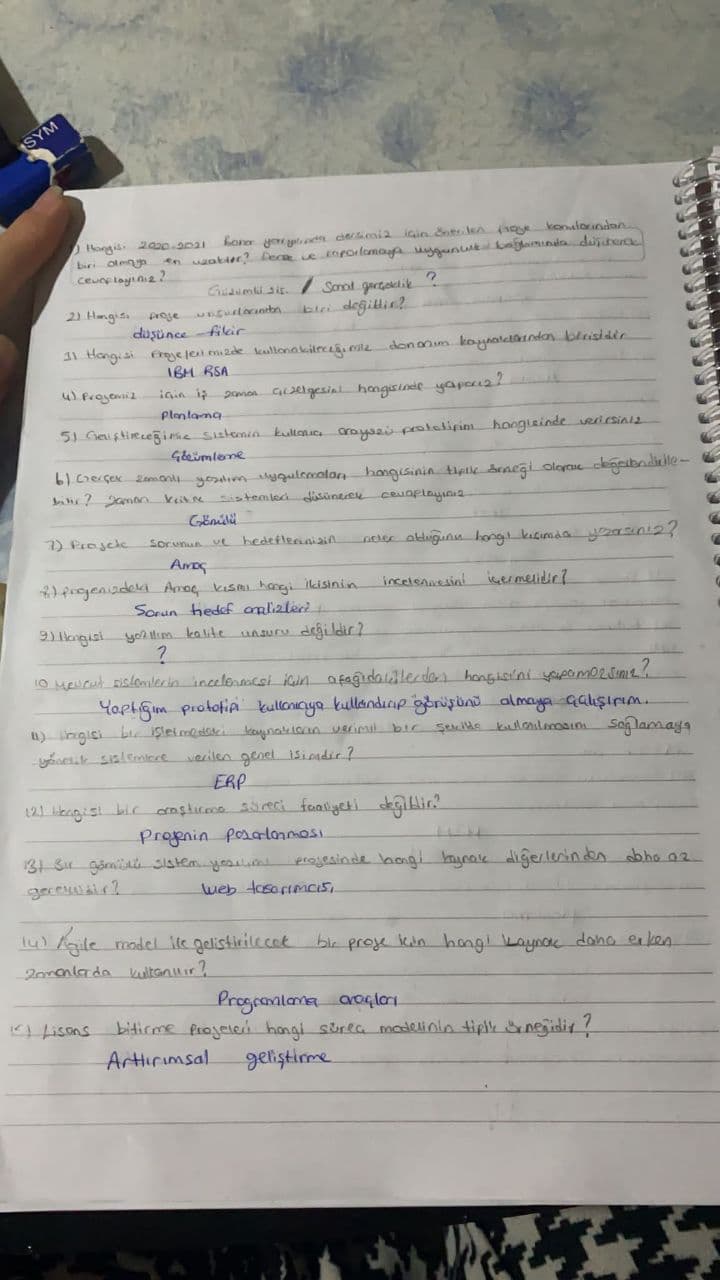 SYM
) Hangisi 2020-2021 bahar yarıyılında dersimiz için önerilen proje konularından
biri olmaya en uzaktır? Derse ve raporlamaya uygunluk bağlamında düşünerek
cevaplayınız?
Gözümlü sis. / Sanal gerçeklik ?
2) Hangisi proje unsurlarından biri değildir?
düşünce - fikir
3) Hangisi Projelerimizde kullanabileceğimiz donanım kaynaklarından birisidir
IBM RSA
4) Projemiz için iş zaman çizelgesini hangisinde yaparız?
Planlama
5) Geliştireceğimiz sistemin kullanıcı arayüzü prototipini hangisinde verirsiniz
Çözümleme
6) Gerçek zamanlı yazılım uygulamaları hangisinin tipik örneği olarak değerlendirile-
bilir? Zaman kritik sistemleri düşünerek cevaplayınız
Gömülü
7) Projede sorunun ve hedeflerinizin neler olduğunu hangi kısımda yazarsınız?
Amaç
8) Projenizdeki Amaç kısmı hangi ikisinin incelenmesini içermelidir?
Sorun hedef analizleri
9) Hangisi yazılım kalite unsuru değildir?
?
10 Mevcut sistemlerin incelenmesi için aşağıdakilerden hangisini yapamazsınız?
Yaptığım prototipi kullanıcıya kullandırıp görüşünü almaya çalışırım.
11) Hangisi bir işletmedeki kaynakların verimli bir şekilde kullanılmasını sağlamaya
yönelik sistemlere verilen genel isimdir?
ERP
12) Hangisi bir araştırma süreci faaliyeti değildir?
Projenin pazarlanması
13) Bir gömülü sistem yazılımı projesinde hangi kaynak diğerlerinden daha az
gereklidir? web tasarımcısı
14) Agile model ile geliştirilecek bir proje için hangi kaynak daha erken
zamanlarda kullanılır?
Programlama araçları
15) Lisans bitirme projeleri hangi süreç modelinin tipik örneğidir?
Arttırımsal geliştirme